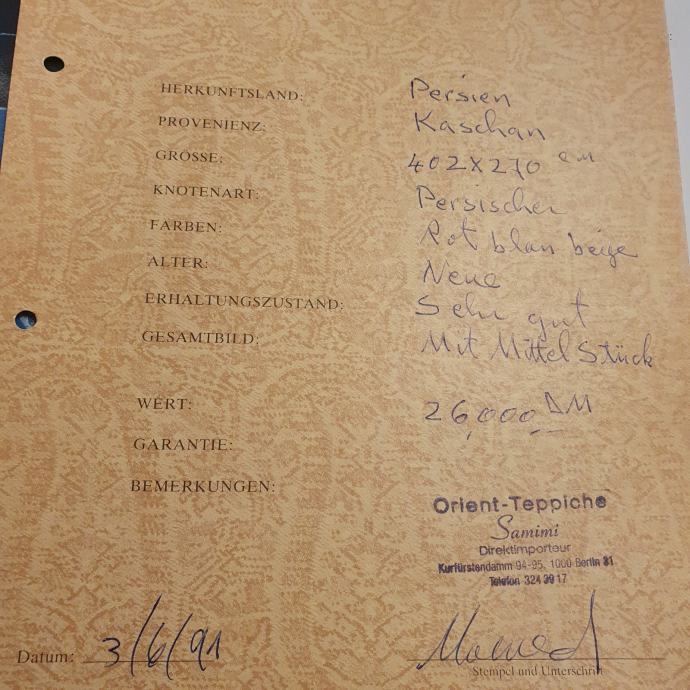 HERKUNFTSLAND: Persien
PROVENIENZ: Kaschan
GRÖSSE: 402X270 cm
KNOTENART: Persischer
FARBEN: Rot blau beige
ALTER: Neue
ERHALTUNGSZUSTAND: Sehr gut
GESAMTBILD: Mit Mittel Stück
WERT: 26,000 DM
GARANTIE:
BEMERKUNGEN:
Orient-Teppiche
Samimi
Direktimporteur
Kurfürstendamm 94-95, 1000 Berlin 31
Telefon 324 39 17
Datum: 3/6/91
Stempel und Unterschrift